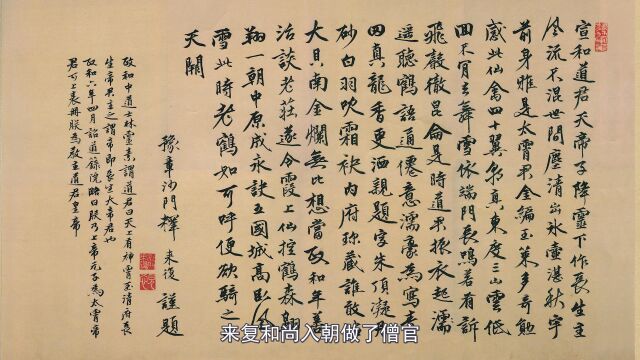 宣和道君天帝子降靈下作長生主
風流不混世間塵清出冰壺湛秋宇
前身雅是太霄君金編玉策多奇勳
感此仙禽四十翼分真東度三山雲低
回不肯去舞雪依端門長鳴若有訴
飛聲徹昆侖是時道君振衣起
遥聽鶴語通僊意濡毫為寫青
田真龍香更洒親題字朱頂凝丹
砂白羽吹霜袂内府珍藏誰敢
大貝南金爛無比想當政和年善
治談老莊遂令霞上仙控鶴森翱
翔一朝中原成永訣五國城高臥風
雪此時老鶴如可呼便欲騎之
天闕
豫章沙門釋 来復 謹題
政和中道士林靈素謂道君曰天上有神霄玉清府長
生帝君主之謂帝即長生大帝君也
政和六年四月詔道錄院略曰朕乃上帝元子為太霄帝
君可上表冊朕為教主道君皇帝
来复和尚入朝做了僧官